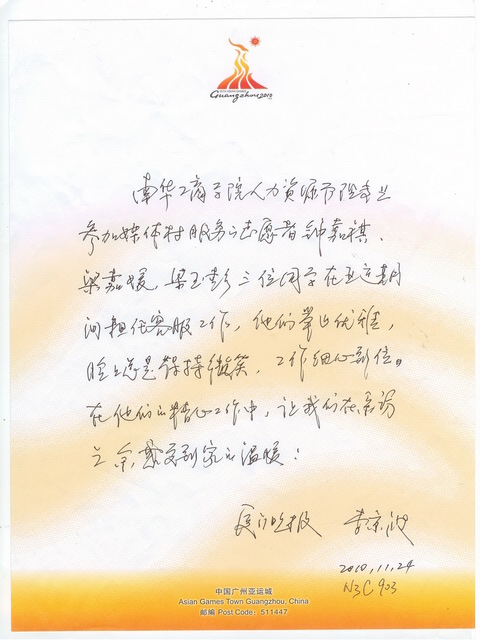 Guangzhou 2010
南华工商学院人力资源管理专业
参加媒体村服务的志愿者钟嘉祺、
梁嘉媛、梁玉彭三位同学在亚运期
间担任客服工作，他们举止优雅，
脸上总是保持微笑，工作细心到位。
在他们的精心工作中，让我们在采访
之余感受到家的温暖！
厦门晚报 李京波
2010.11.24
N3C903
中国广州亚运城
Asian Games Town Guangzhou, China
邮编 Post Code: 511447